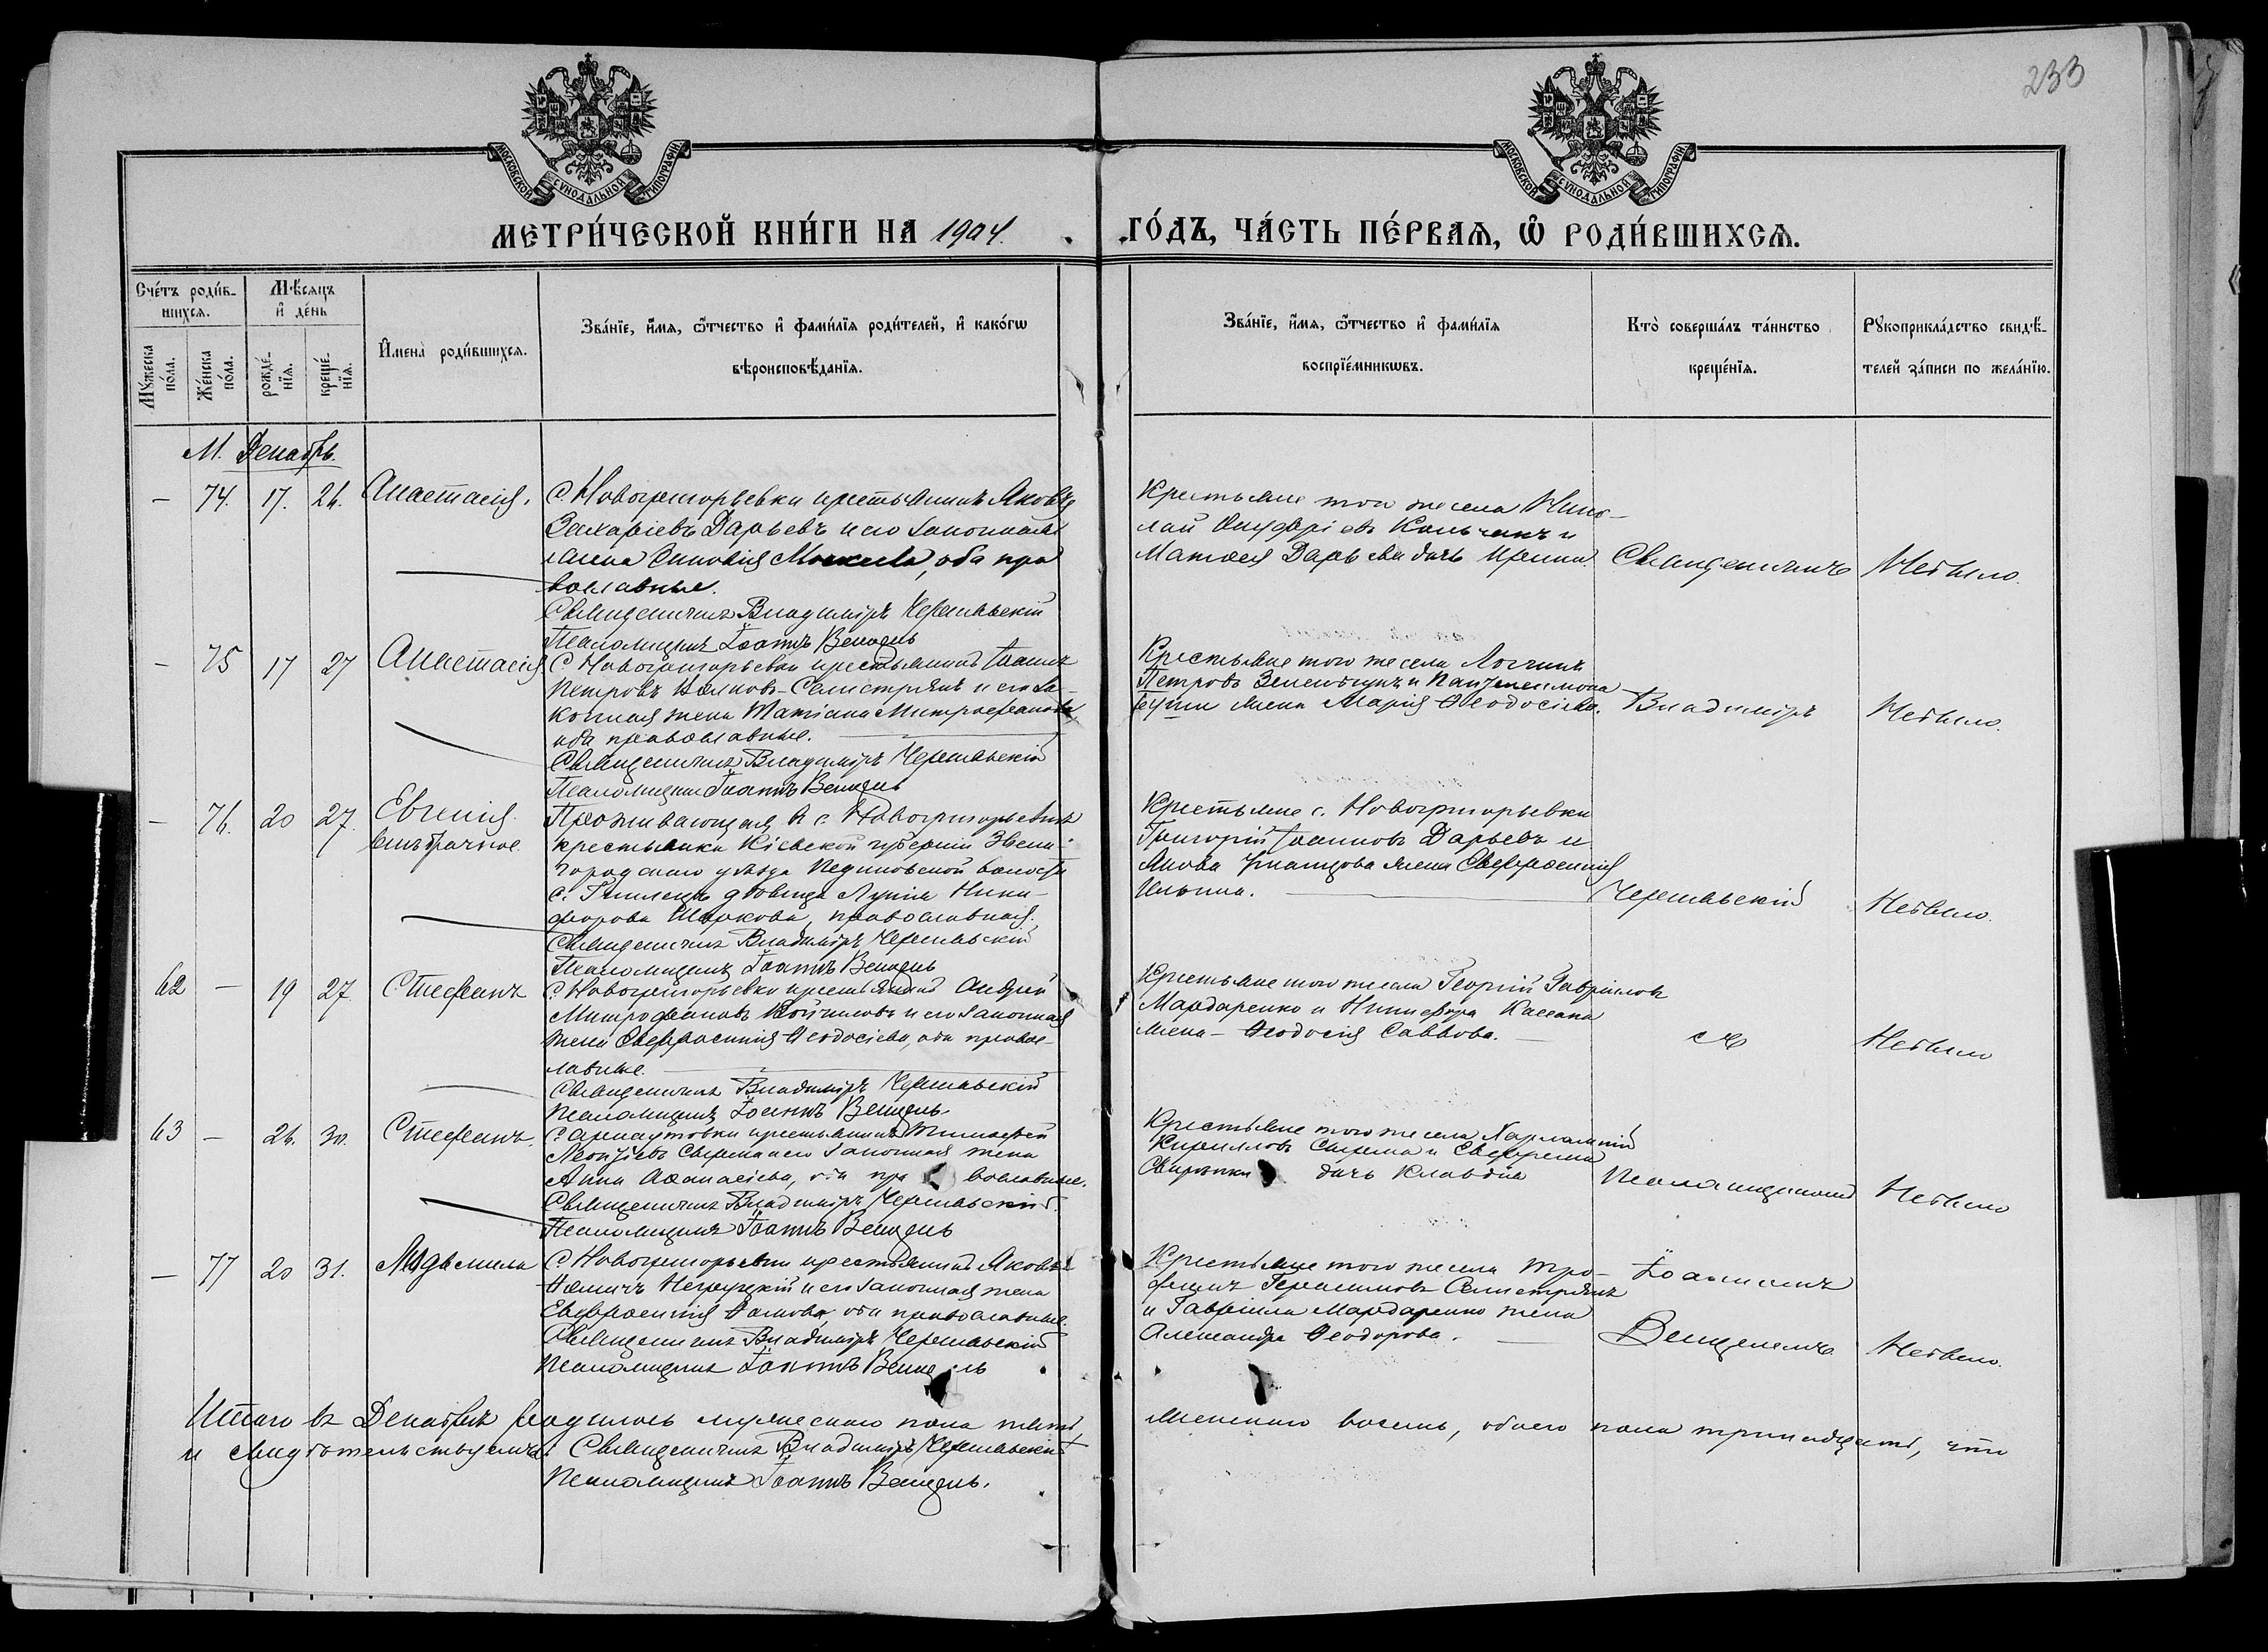 233
МОСКОВСКОЙ СѴНОДАЛЬНОЙ ТИПОГРАФІИ
МОСКОВСКОЙ СѴНОДАЛЬНОЙ ТИПОГРАФІИ
МЕТРИ́ЧЕСКОЙ КНИ́ГИ НА 1904. ГО́ДЪ, ЧА́СТЬ ПЕ́РВАѦ, Ѡ РОДИ́ВШИХСѦ.
Сче́тъ роди́в-
шихсѧ.
Мѣ́сяцъ
и де́нь
Мꙋ́жеска по́ла.
Же́нска по́ла.
рожде́-
нїѧ.
креще́-
нїѧ.
Имена̀ роди́вшихсѧ.
Зва́нїе, и́мѧ, ѻ҆́тчество и фами́лїѧ роди́телей, и како́гѡ
вѣроисповѣ́данїѧ.
Зва́нїе, и́мѧ, ѻ҆́тчество и фами́лїѧ
воспрїе́мникѡвъ.
Кто̀ соверша́лъ та́инство
креще́нїѧ.
Рꙋкоприкла́дство свидѣ́-
телей за́писи по жела́нїю.
М. Декабрь.
– 74. 17. 26. Анастасія.
С. Новогригорьевки крестьянинъ Яковъ
Захаріевъ Дарьевъ и его законная
жена, оба пра
вославные.
Священникъ Владиміръ Черняевскій
Псаломщикъ Іоаннъ Венцель
Крестьяне того же села Нико-
лай и
Матѳея Дарьева дочь Ирина.
Священникъ
Не было.
– 75 17 27 Анастасія
С. Новогригорьевки крестьянинъ Іоаннъ
Петровъ Селистрянъ и его за-
конная жена Татіана Митрофанова
оба православные.
Священникъ Владиміръ Черняевскій
Псаломщикъ Іоаннъ Венцель
Крестьяне того же села Логгинъ
Петровъ и Пантелеимона
жена Марія Ѳеодосіева.
Владиміръ
Не было.
– 76. 20 27. Евгенія.
внѣбрачное.
Проживающая въ с. Новогригорьевкѣ
крестьянка Кіевской губерніи Звени-
городскаго уѣзда волости
с. дѣвица Ники-
форова, православная.
Священникъ Владиміръ Черняевскій
Псаломщикъ Іоаннъ Венцель
Крестьяне с. Новогригорьевки
Григорій Іоанновъ Дарьевъ и
Якова жена Евфросинія
Ильина.
Черняевскій
Не было.
62 – 19 27. Стефанъ
С. Новогригорьевки крестьянинъ Андрей
Митрофановъ и его законная
жена Евфросинія Ѳеодосіева, оба правос-
лавные.
Священникъ Владиміръ Черняевскій
Псаломщикъ Іоаннъ Венцель
Крестьяне того же села Георгій Гавріиловъ
Мардаренко и Никифора
жена – Ѳеодосія Саввова.
съ
Не было
63 – 26. 30. Стефанъ.
С. Арнаутовки крестьянинъ Тимофей
Леонтіевъ и его законная жена
Анна Аѳанасіева, оба пра вославные.
Священникъ Владиміръ Черняевскій
Псаломщикъ Іоаннъ Венцель
Крестьяне того же села Харлампій
Кирилловъ и Ефрема
дочь Клавдія
Псаломщикомъ
Не было
– 77 20 31. Людмила
С. Новогригорьевки крестьянинъ Яковъ
и его законная жена
Евфросинія, оба православные.
Священникъ Владиміръ Черняевскій
Псаломщикъ Іоаннъ Венцель
Крестьяне того же села Тро-
фимъ Герасимовъ Селистрянъ
и Гавріила Мардаренко жена
Александра Ѳеодорова.
Іоанномъ
Венцелемъ
Не было.
Итого въ Декабрѣ родилось мужескаго пола пять женскаго восемь, обоего пола тринадцать, что
и свидѣтельствуемъ: Священникъ Владиміръ Черняевскій
Псаломщикъ Іоаннъ Венцель.